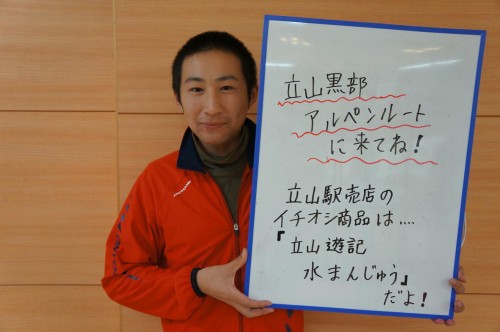 立山黒部
アルペンルート
に来てね！
立山駅売店の
イチオシ商品は‥‥
『立山遊記
水まんじゅう』
だよ！